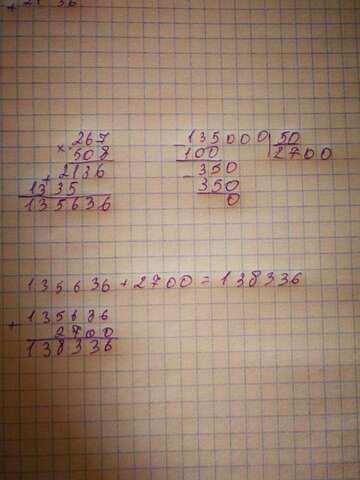 267
× 508
2136
+
1335
135636
- 135000 | 50
100 2700
- 350
350
0
135636 + 2700 = 138336
+ 135636
2700
138336